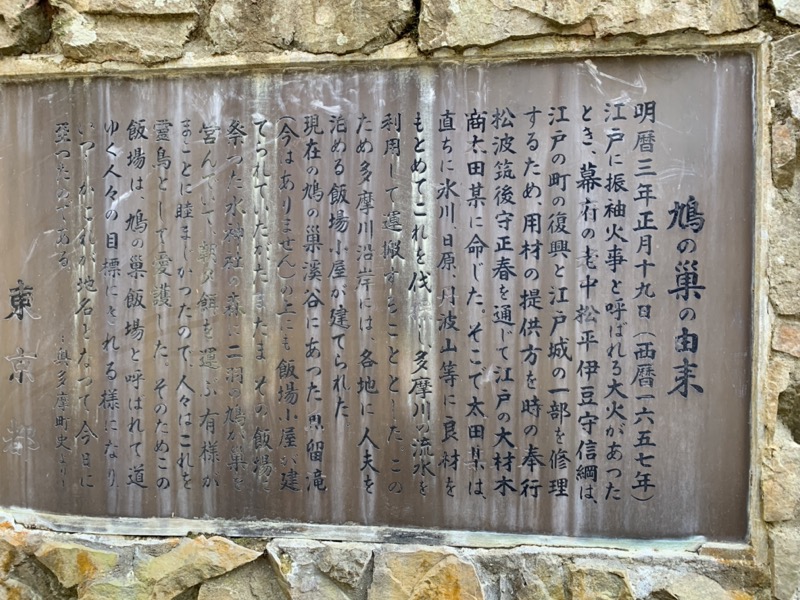 鳩の巣の由来
明暦三年正月十九日(西暦一六五七年)
江戸に振袖火事と呼ばれる大火があつた
とき、幕府の老中松平伊豆守信綱は、
江戸の町の復興と江戸城の一部を修理
するため、用材の提供方を時の奉行
松波筑後守正春を通じて江戸の大材木
商太田某に命じた。そこで太田某は、
直ちに氷川、日原、丹波山等に良材を
もとめてこれを伐 し多摩川の流水を
利用して運搬することとした。この
ため多摩川沿岸には、各地に人夫を
泊める飯場小屋が建てられた。
現在の鳩の巣溪谷にあつた 留滝
(今はありません)の上にも飯場小屋が建
てられていたがたまたま、その飯場に
祭つた水神社の森に二羽の鳩が巣を
営んでいて朝夕餌を運ぶ有様が
まことに睦まじかつたので、人々はこれを
愛鳥として愛護した。そのためこの
飯場は、鳩の巣飯場と呼ばれて道
ゆく人々の目標にされる様になり
いつしかこれが地名となつて今日に
至つたのである。
奥多摩町史より
東京都